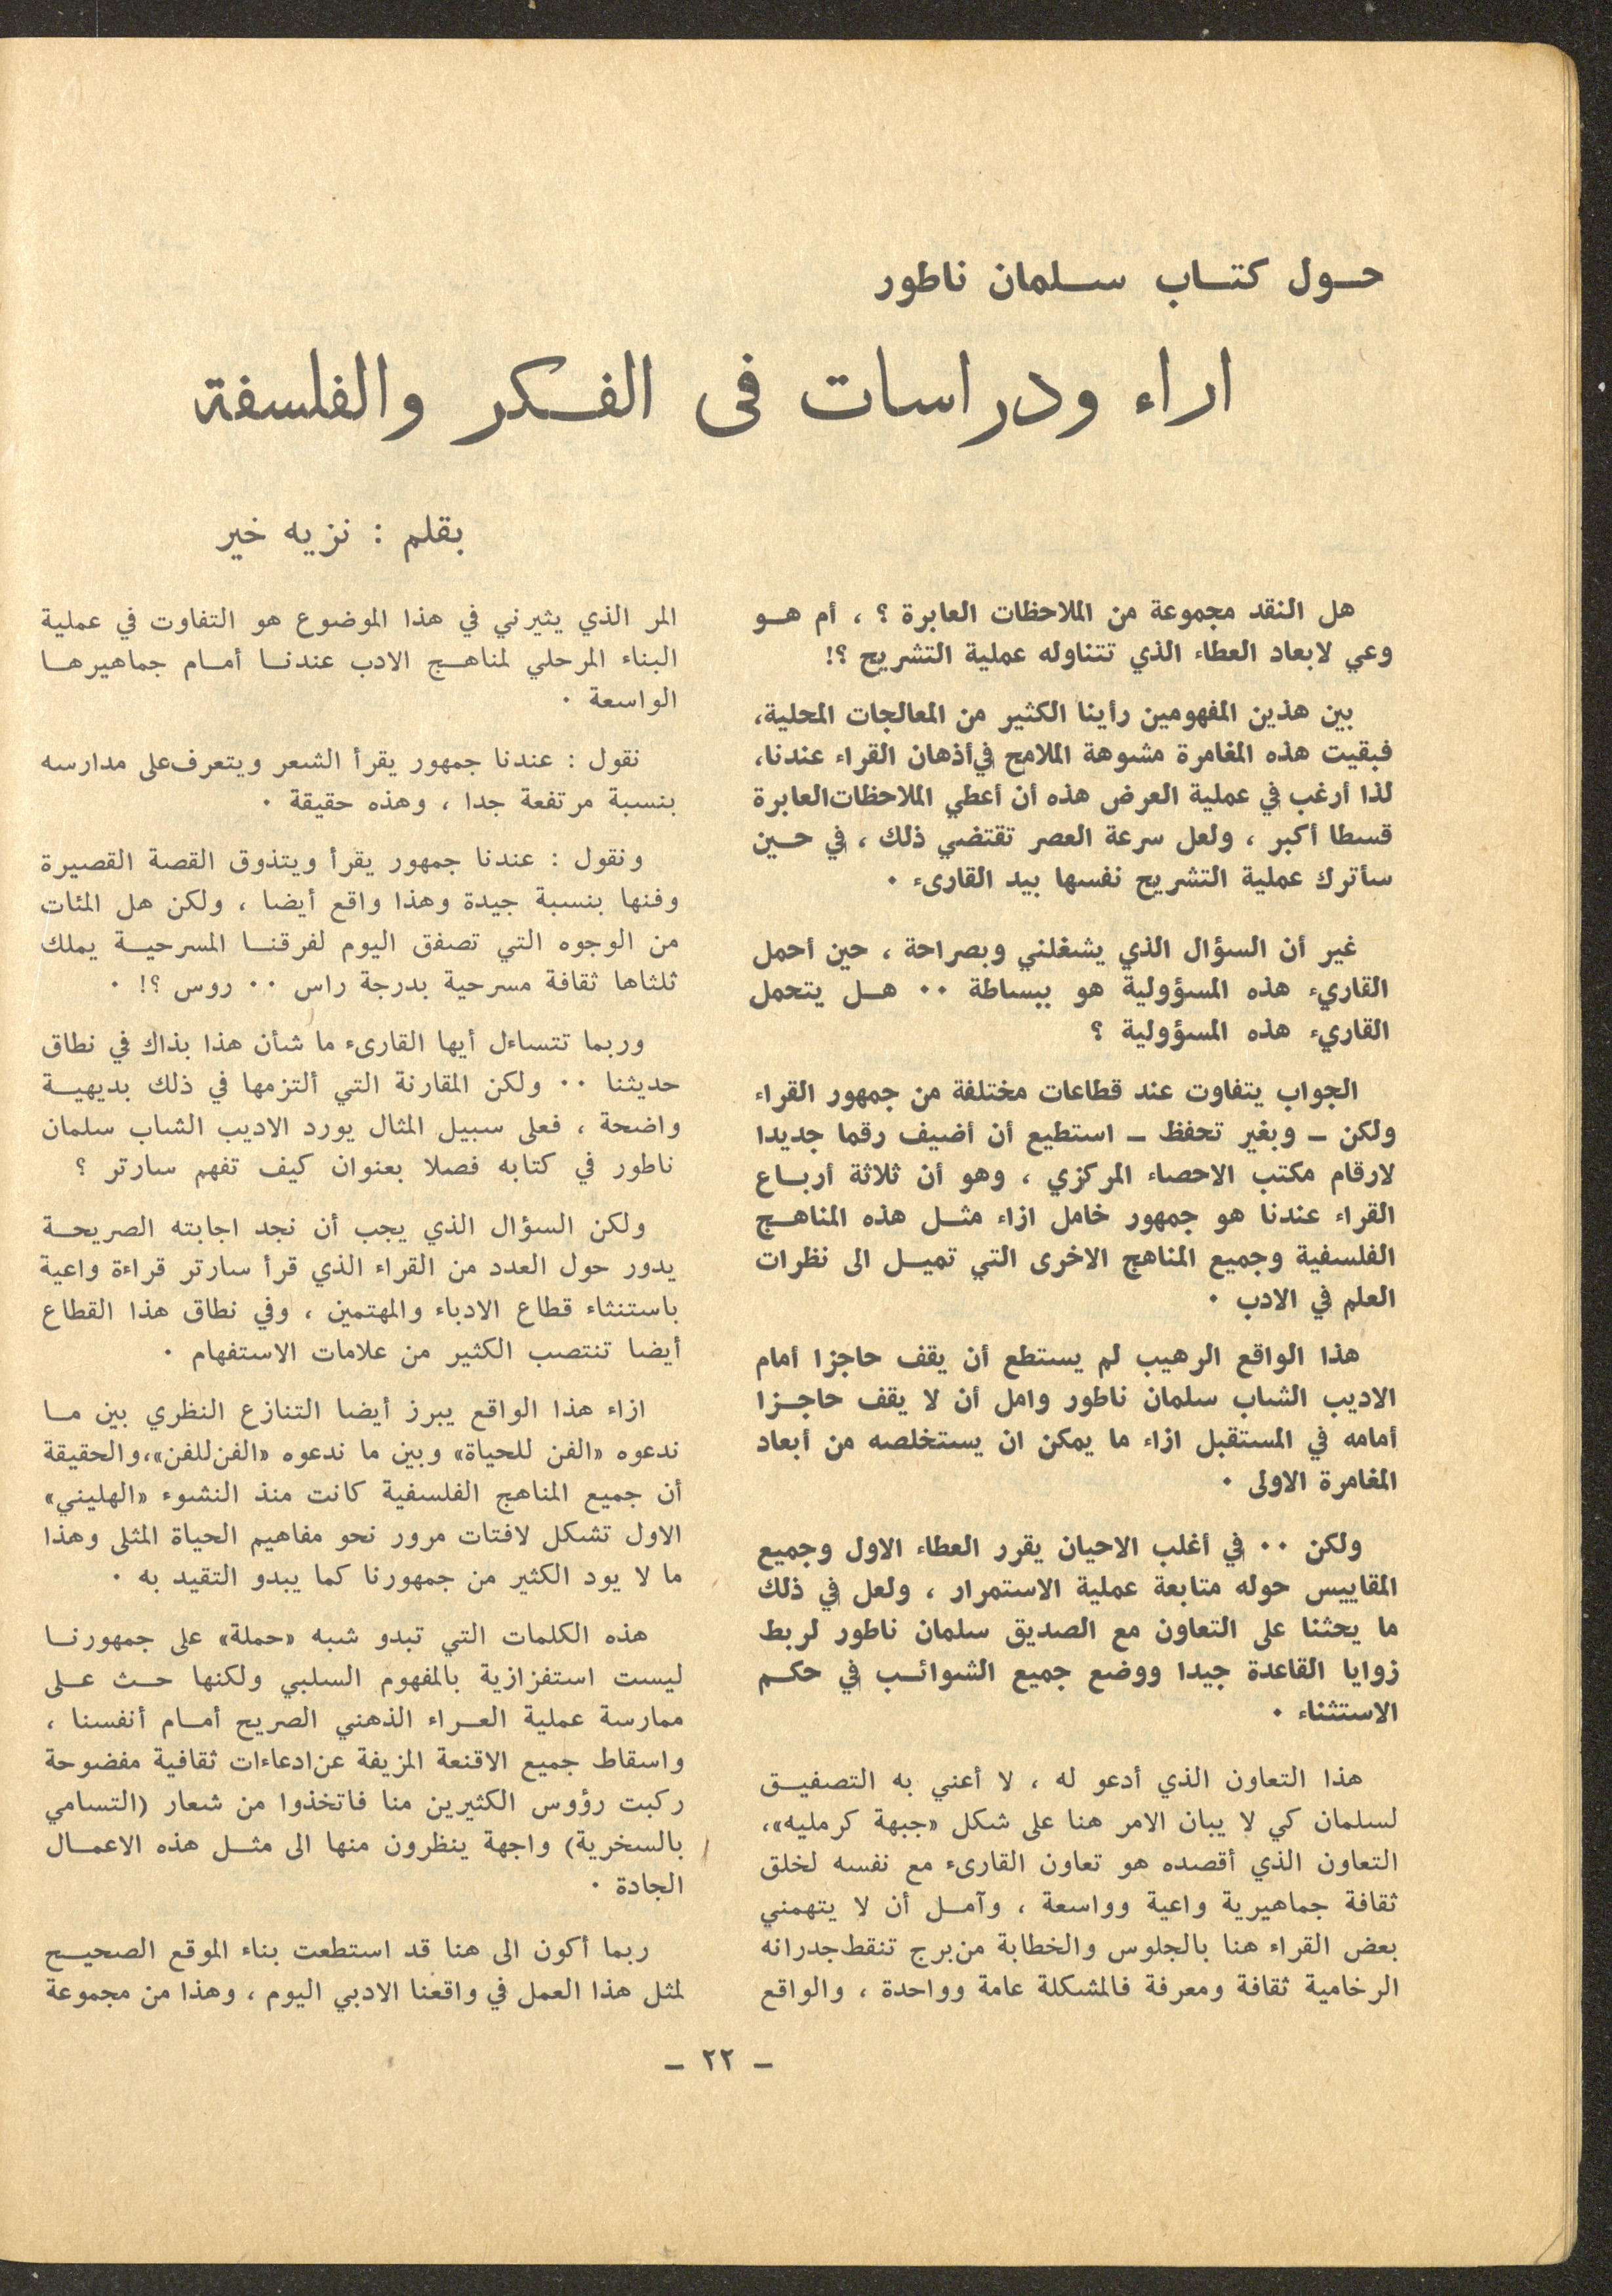 حول كتاب سلمان ناطور
اراء ودراسات في الفكر والفلسفة
بقلم : نزيه خير
هل النقد مجموعة من الملاحظات العابرة ؟ ، أم هو
وعي لابعاد العطاء الذي تتناوله عملية التشريح ؟!
بين هذين المفهومين رأينا الكثير من المعالجات المحلية،
فبقيت هذه المغامرة مشوهة الملامح في أذهان القراء عندنا،
لذا أرغب في عملية العرض هذه أن أعطي الملاحظات العابرة
قسطا أكبر ، ولعل سرعة العصر تقتضي ذلك ، في حين
سأترك عملية التشريح نفسها بيد القارىء .
غير أن السؤال الذي يشغلني وبصراحة ، حين أحمل
القاريء هذه المسؤولية هو ببساطة .. هل يتحمل
القاريء هذه المسؤولية ؟
الجواب يتفاوت عند قطاعات مختلفة من جمهور القراء
ولكن – وبغير تحفظ – استطيع أن أضيف رقما جديدا
لارقام مكتب الاحصاء المركزي ، وهو أن ثلاثة أرباع
القراء عندنا هو جمهور خامل ازاء مثل هذه المناهج
الفلسفية وجميع المناهج الاخرى التي تميل الى نظرات
العلم في الادب .
هذا الواقع الرهيب لم يستطع أن يقف حاجزا أمام
الاديب الشاب سلمان ناطور وامل أن لا يقف حاجزا
أمامه في المستقبل ازاء ما يمكن ان يستخلصه من أبعاد
المغامرة الاولى .
ولكن .. في أغلب الاحيان يقرر العطاء الاول وجميع
المقاييس حوله متابعة عملية الاستمرار ، ولعل في ذلك
ما يحثنا على التعاون مع الصديق سلمان ناطور لربط
زوايا القاعدة جيدا ووضع جميع الشوائب في حكم
الاستثناء .
هذا التعاون الذي أدعو له ، لا أعني به التصفيق
لسلمان كي لا يبان الامر هنا على شكل «جبهة كرمليه»،
التعاون الذي أقصده هو تعاون القارىء مع نفسه لخلق
ثقافة جماهيرية واعية وواسعة ، وآمل أن لا يتهمني
بعض القراء هنا بالجلوس والخطابة من برج تنقط جدرانه
الرخامية ثقافة ومعرفة فالمشكلة عامة وواحدة ، والواقع
المر الذي يثيرني في هذا الموضوع هو التفاوت في عملية
البناء المرحلي لمناهج الادب عندنا أمام جماهيرها
الواسعة .
نقول : عندنا جمهور يقرأ الشعر ويتعرف على مدارسه
بنسبة مرتفعة جدا ، وهذه حقيقة .
ونقول : عندنا جمهور يقرأ ويتذوق القصة القصيرة
وفنها بنسبة جيدة وهذا واقع أيضا ، ولكن هل المئات
من الوجوه التي تصفق اليوم لفرقنا المسرحية يملك
ثلثاها ثقافة مسرحية بدرجة راس .. روس ؟! .
وربما تتساءل أيها القارىء ما شأن هذا بذاك في نطاق
حديثنا .. ولكن المقارنة التي ألتزمها في ذلك بديهية
واضحة ، فعلى سبيل المثال يورد الاديب الشاب سلمان
ناطور في كتابه فصلا بعنوان كيف تفهم سارتر ؟
ولكن السؤال الذي يجب أن نجد اجابته الصريحة
يدور حول العدد من القراء الذي قرأ سارتر قراءة واعية
باستثناء قطاع الادباء والمهتمين ، وفي نطاق هذا القطاع
أيضا تنتصب الكثير من علامات الاستفهام .
ازاء هذا الواقع يبرز أيضا التنازع النظري بين ما
ندعوه «الفن للحياة» وبين ما ندعوه «الفن للفن»، والحقيقة
أن جميع المناهج الفلسفية كانت منذ النشوء «الهليني»
الاول تشكل لافتات مرور نحو مفاهيم الحياة المثلى وهذا
ما لا يود الكثير من جمهورنا كما يبدو التقيد به .
هذه الكلمات التي تبدو شبه «حملة» على جمهورنا
ليست استفزازية بالمفهوم السلبي ولكنها حث على
ممارسة عملية العراء الذهني الصريح أمام أنفسنا ،
واسقاط جميع الاقنعة المزيفة عن ادعاءات ثقافية مفضوحة
ركبت رؤوس الكثيرين منا فاتخذوا من شعار (التسامي
بالسخرية) واجهة ينظرون منها الى مثل هذه الاعمال
الجادة .
ربما أكون الى هنا قد استطعت بناء الموقع الصحيح
لمثل هذا العمل في واقعنا الادبي اليوم ، وهذا من مجموعة
– ٢٢ –